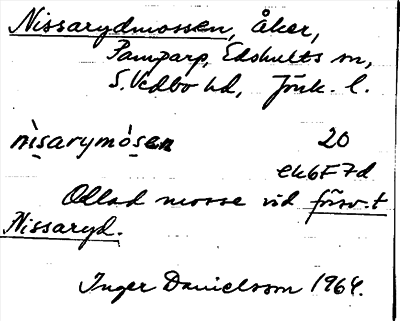 Nissarydmossen, Åker,
Pamparp, Edshults sn,
S. Vedbo hd, Jönk. l.
nisarymosen 20
ek6F7d
Odlad mosse vid försv.t
Nissaryd.
Inger Danielsson 1964.